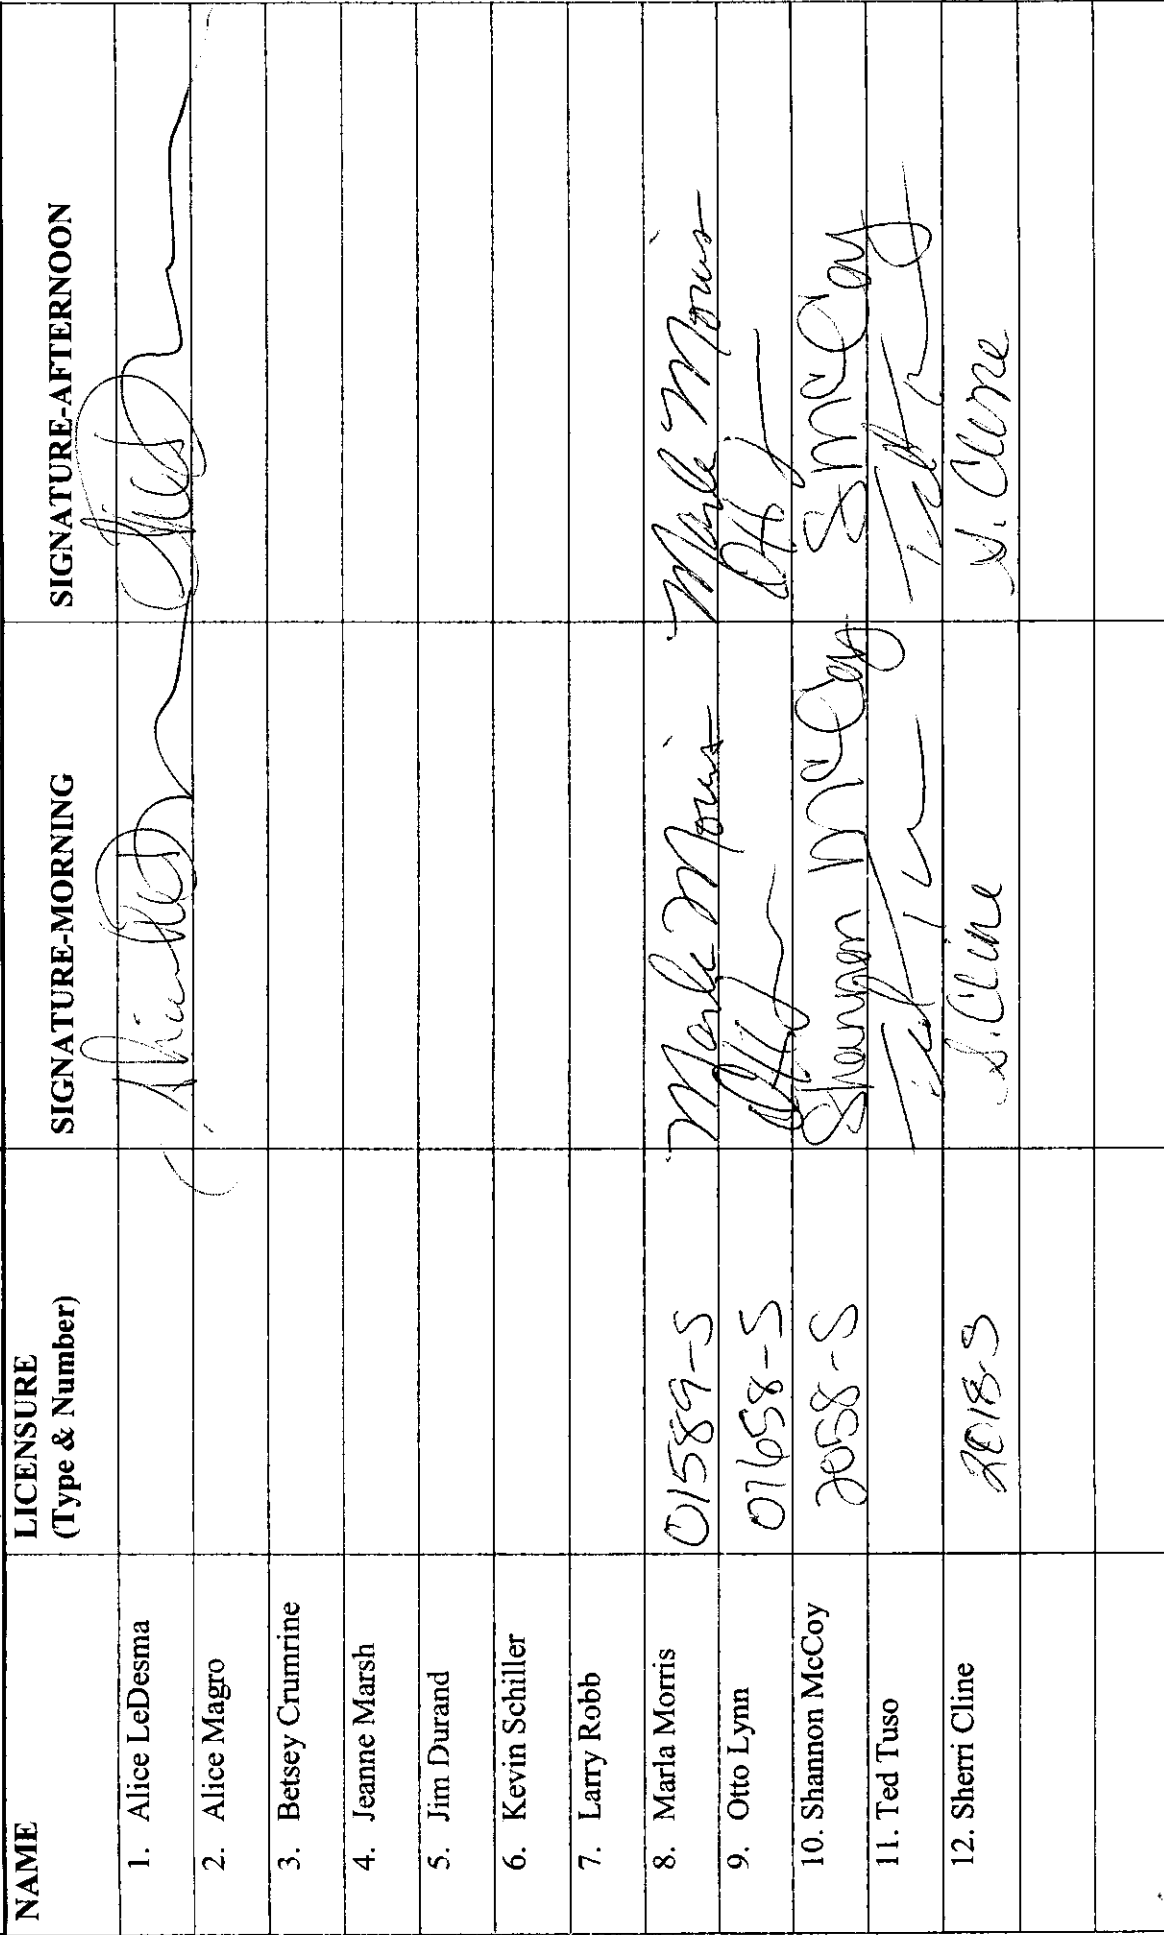 NAME LICENSURE (Type & Number) SIGNATURE-MORNING SIGNATURE-AFTERNOON
1. Alice LeDesma
2. Alice Magro
3. Betsey Crumrine
4. Jeanne Marsh
5. Jim Durand
6. Kevin Schiller
7. Larry Robb
8. Marla Morris 01589-S Marla Morris Marla Morris
9. Otto Lynn 01658-S
10. Shannon McCoy 2058-S Shannon McCoy S McCoy
11. Ted Tuso
12. Sherri Cline 2018-S S. Cline S. Cline